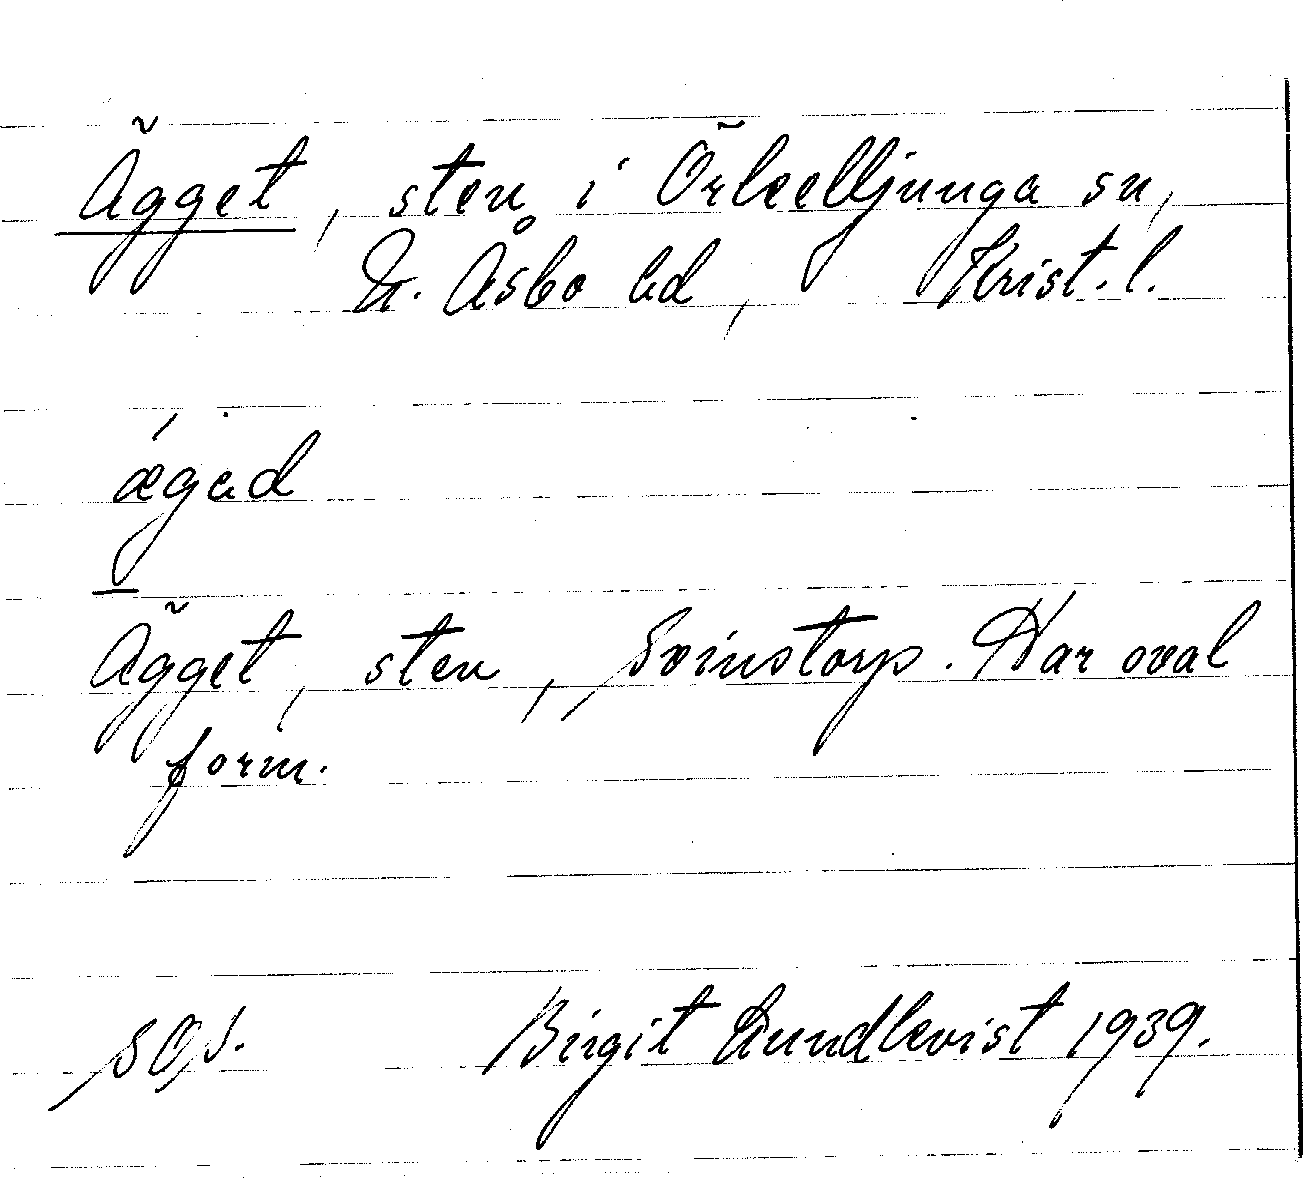 Ägget, sten i Örkelljunga sn,
N. Åsbo hd, Krist. l.
ǽgad
Ägget, sten, Svinstorp. Har oval
form.
Birgit Lundkvist 1939.